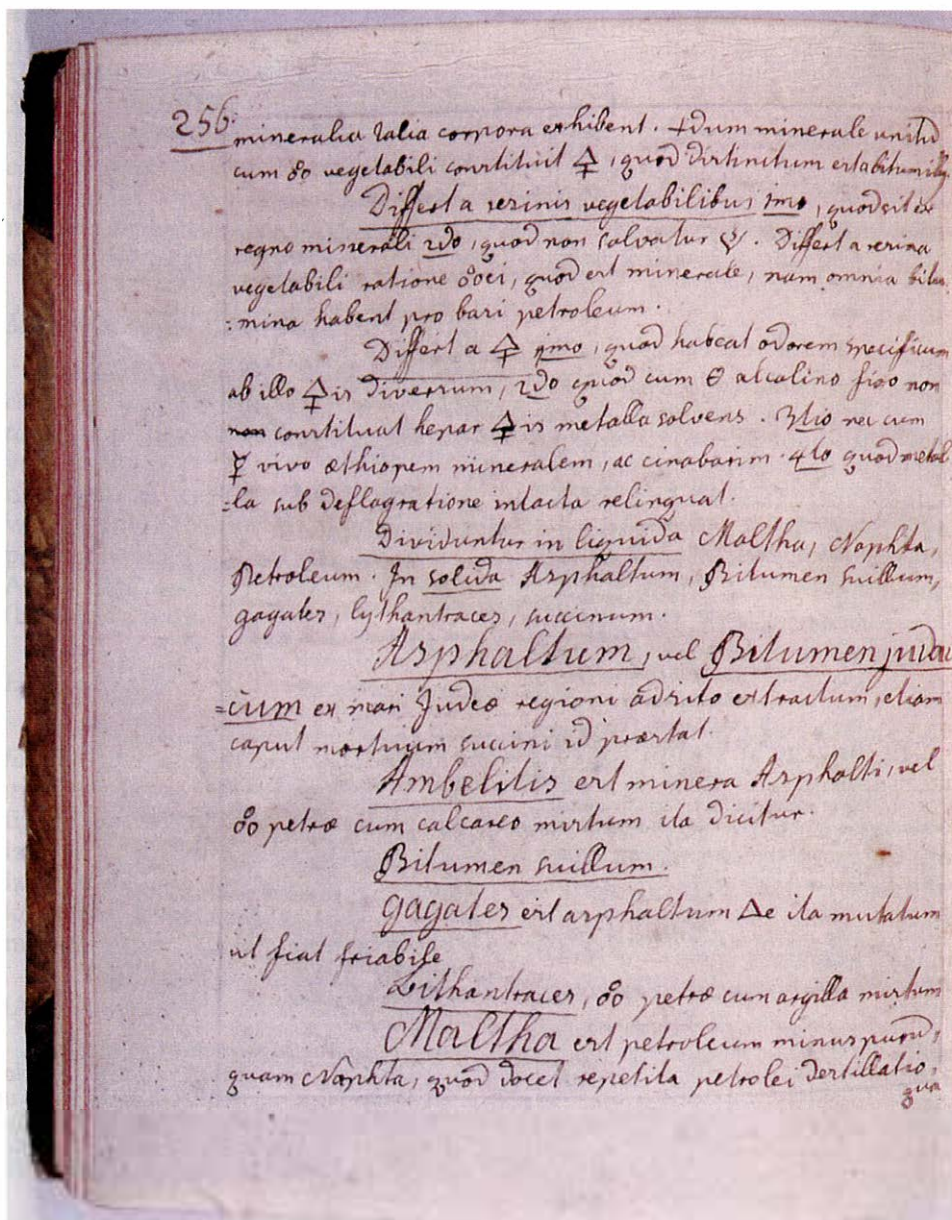 256.
mineralia talia corpora exhibent. +dum minerale unitū
cum o°o vegetabili constituit 🜍, quod distinctum est a bitumi
Differt a resinis vegetabilibus 1mo, quod sit ex
regno minerali 2do, quod non solvatur. Differt a resina
vegetabili ratione o°oei, quod est minerale, nam omnia bitu
:mina habent pro basi petroleum.
Differt a 🜍 1mo, quod habeat odorem specificum
ab illo 🜍is diversum, 2do quod cum 🜔 alcalino fixo non
non constituat hepar 🜍is metalla solvens. 3tio nec cum
☿ vivo æthiopem mineralem, ac cinabarim. 4to quod metal
:la sub deflagratione intacta relinquat.
Dividuntur in liquida Maltha, Naphta,
Petroleum. In solida Asphaltum, Bitumen suillum,
gagates, lythantraces, succinum.
Asphaltum, vel Bitumen judai
=cum ex mari Judeæ regioni adsito extractum, etiam
caput mortuum succini id præstat.
Ambelitis est minera Asphalti, vel
o°o petræ cum calcareo mixtum ita dicitur.
Bitumen suillum.
Gagates est asphaltum 🜂e ita mutatum
ut fiat friabile
Lithantraces, o°o petræ cum argilla mixtum
Maltha est petroleum minus purū,
quam Naphta, quod docet repetita petrolei destillatio,
qua